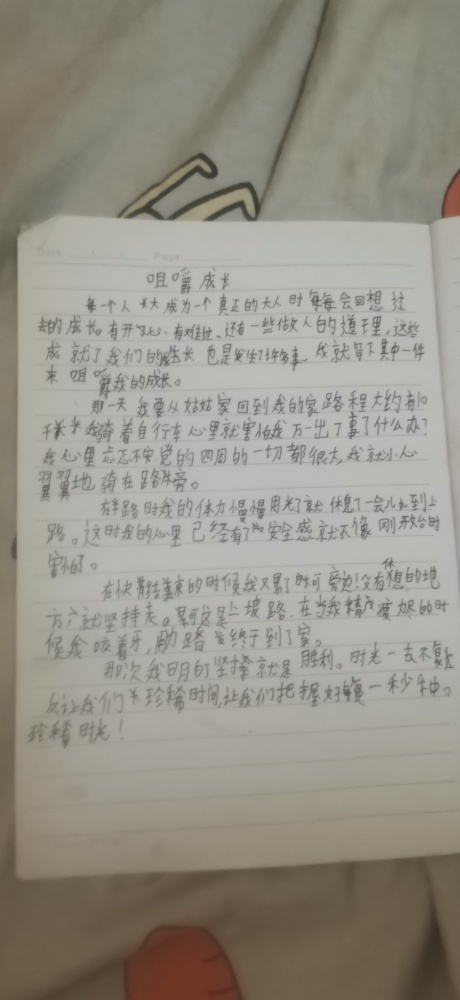 Date Page
咀嚼成长
每一个人长大成为一个真正的大人时每每会回想过
去的成长。有开心、有难过、还有一些做人的道理,这些
成就了我们的成长也是发生了许多事,我就写下其中一件
来咀嚼我的成长。
那一天我要从姑姑家回到我的家路程大约有10
千米我骑着自行车心里就害怕我万一出了事了什么办?
我心里忐忑不安觉的四周的一切都很大,我就小心
翼翼地骑在路旁。
在半路时我的体力慢慢用光了就休息了一会儿到上
路。这时我的心里已经有了安全感就不像刚开始时
害怕了。
在快结束的时候我又累了时可旁边没有休息的地
方就坚持走。可这是上坡路,在当我精疲力尽的时
候我咬着牙,脚踏终于到了家。
那次我明白了坚持就是胜利。时光一去不复
让我们珍稀时间,让我们把握好每一秒钟。
珍稀时光!